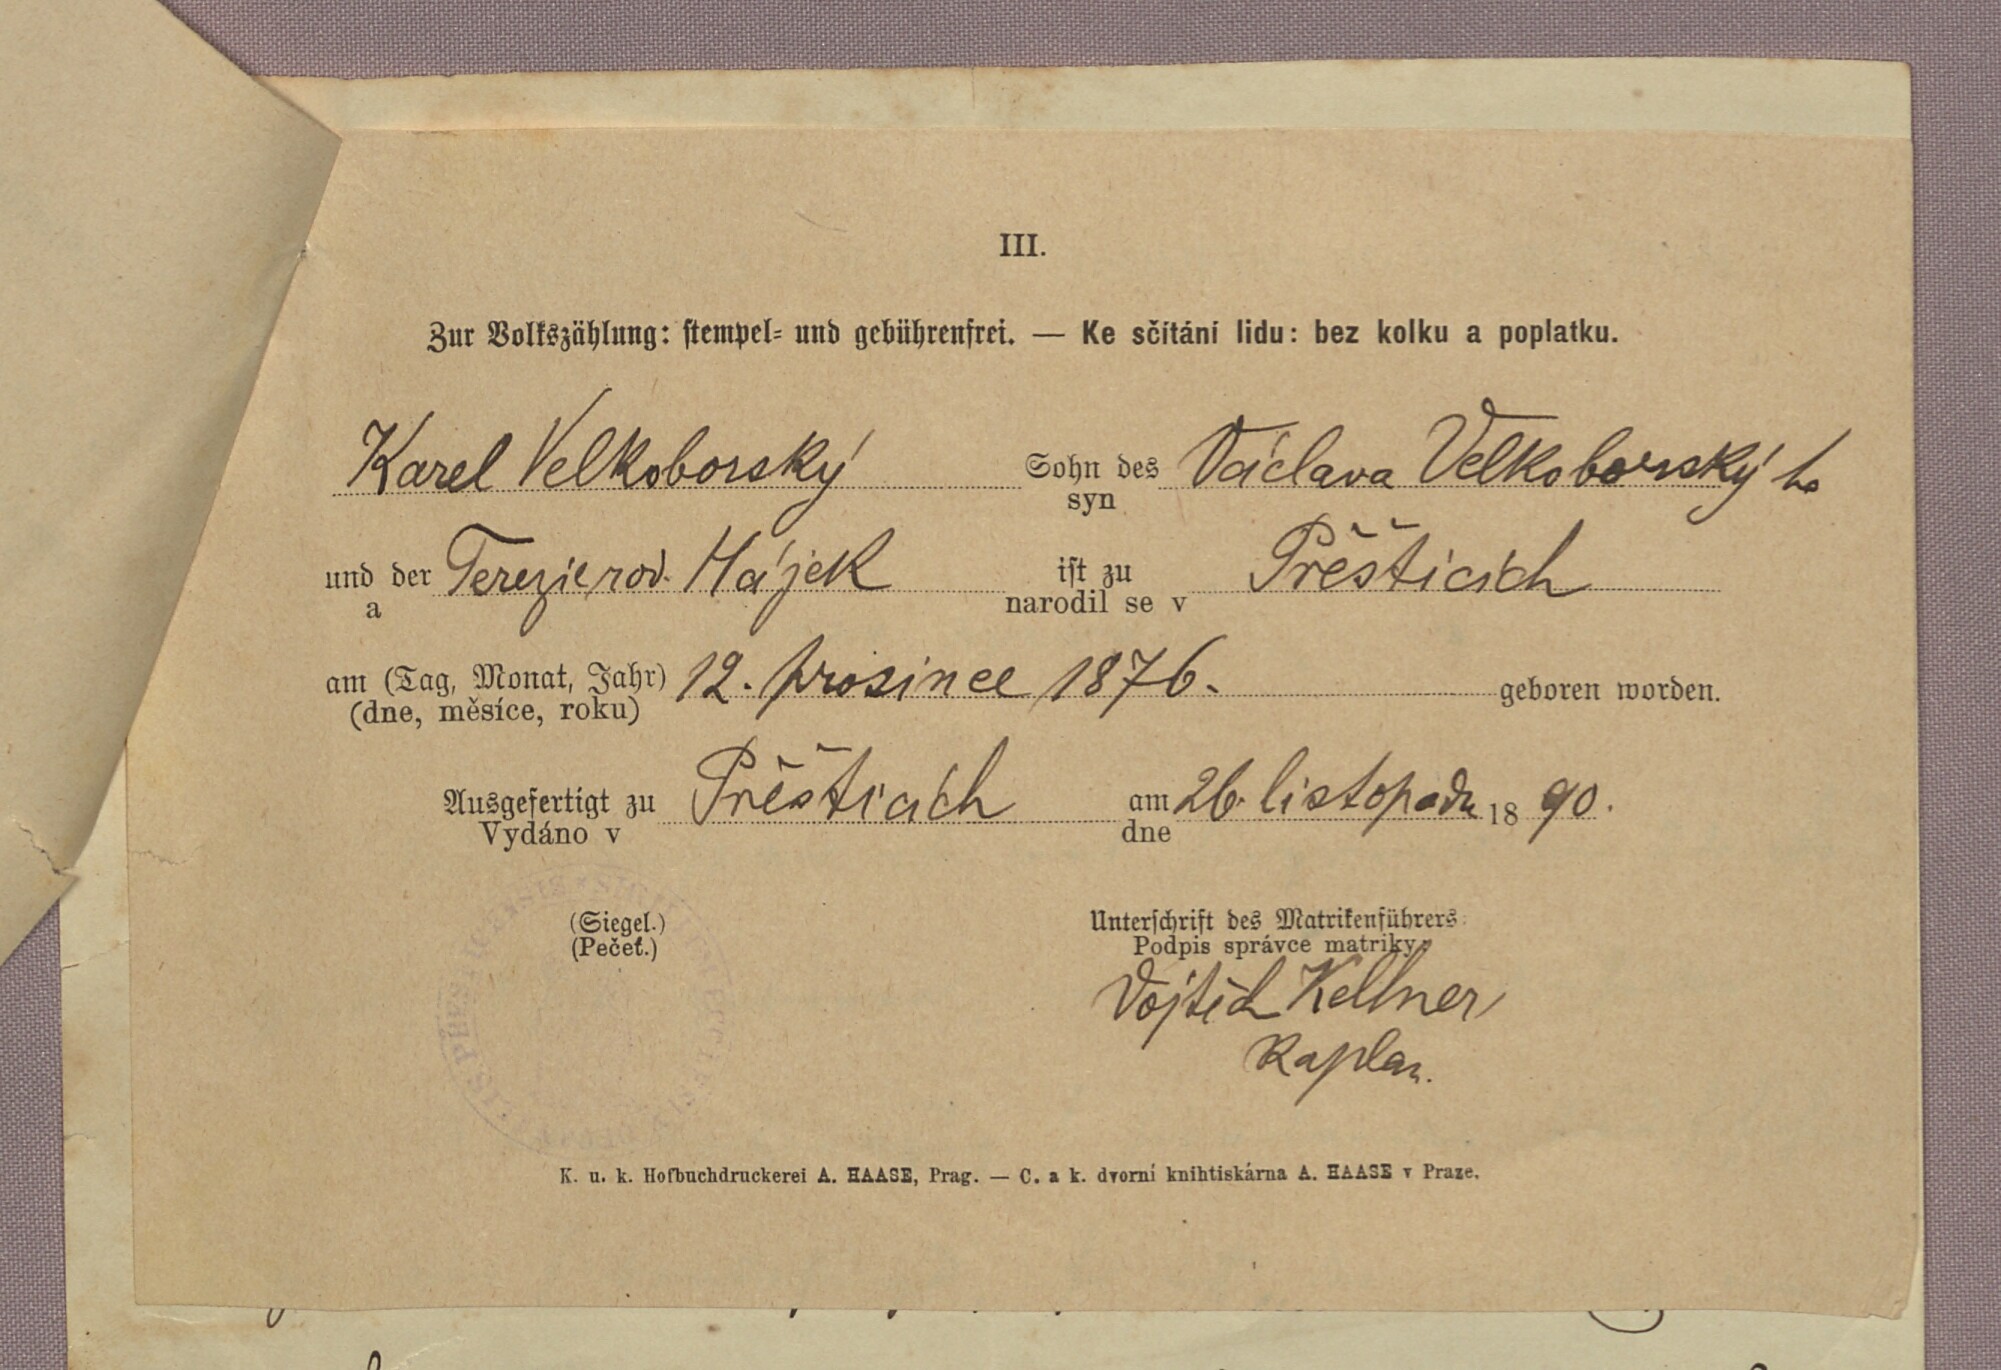 III.
Zur Volkszählung: stempel- und gebührenfrei. — Ke sčítání lidu: bez kolku a poplatku.
Karel Velkoborský Sohn des Václava Velkoborskýho
syn
und der Terezie rod. Hájek ist zu Přěšticích
a narodil se v
am (Tag, Monat, Jahr) 12. prosince 1876. geboren worden.
(dne, měsíce, roku)
Ausgefertigt zu Přěšticích am 26. listopadu 1890.
Vydáno v dne
(Siegel.) Unterschrift des Matrikenführers:
(Pečeť.) Podpis správce matriky:
Vojtěch Kellner,
kaplan.
K. u. k. Hofbuchdruckerei A. HAASE, Prag. — C. a k. dvorní knihtiskárna A. HAASE v Praze.